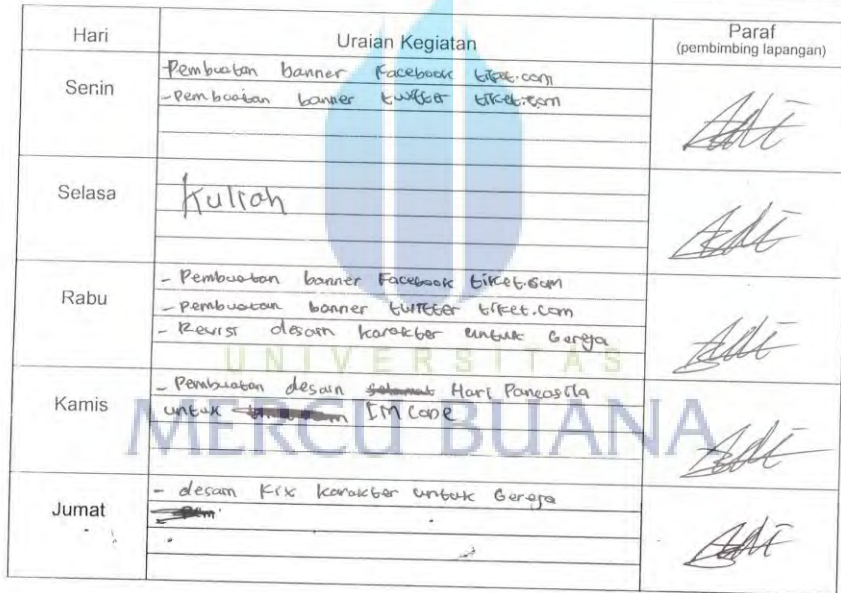 Hari Uraian Kegiatan Paraf
(pembimbing lapangan)
Senin
Pembuatan banner Facebook tiket.com
- Pembuatan banner twitter tiket.com
Selasa
Kuliah
Rabu
- Pembuatan banner Facebook tiket.com
- Pembuatan banner twitter tiket.com
- Revisi desain karakter untuk Gereja
UNIVERSITAS
Kamis
- Pembuatan desain selamat Hari Pancasila
untuk IM Cope
MERCU BUANA
Jumat
- desain Fix karakter untuk Gereja